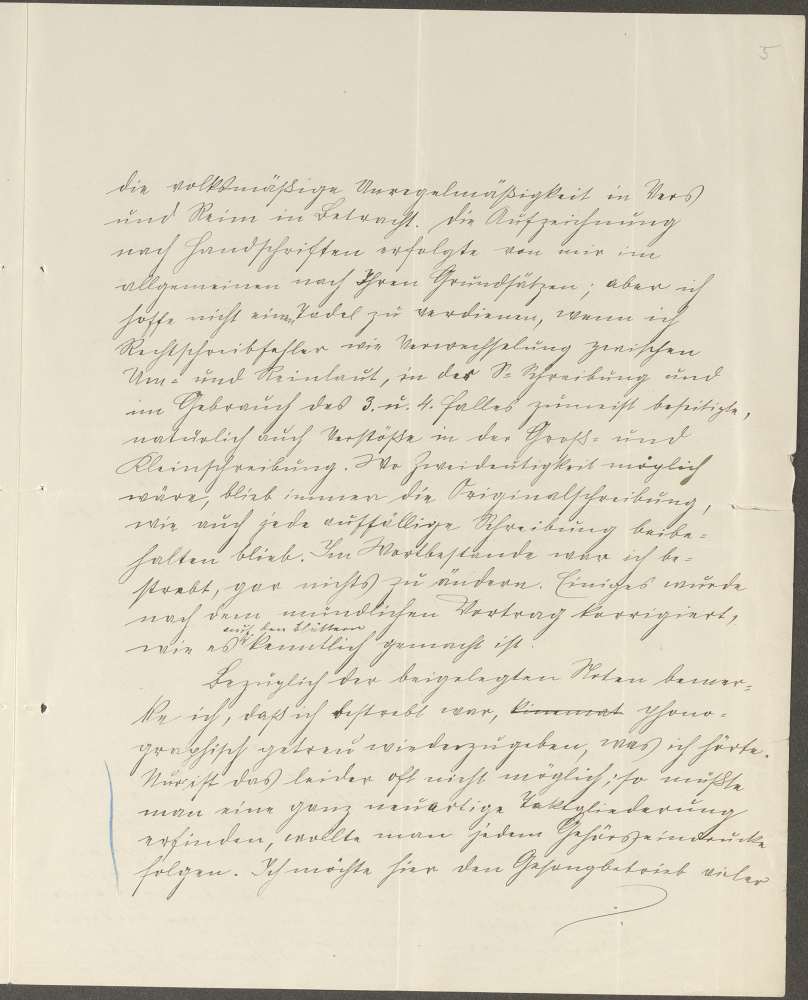 5
die volksmäßige Unregelmäßigkeit in Vers
und Reim in Betracht. Die Aufzeichnung
nach Handschriften erfolgte von mir im
allgemeinen nach Ihren Grundsätzen; aber ich
hoffe nicht einen Tadel zu verdienen, wenn ich
Rechtschreibfehler wie Verwechselung zwischen
Um- und Reinlaut, in der S-Schreibung und
im Gebrauch des 3. u. 4. Falles zumeist beseitigte,
natürlich auch Verstöße in der Groß- und
Kleinschreibung. Wo Zweideutigkeit möglich
wäre, blieb immer die Originalschreibung,
wie auch jede auffällige Schreibung beibe-
halten blieb. Im Wortbestande war ich be-
strebt, gar nichts zu ändern. Einiges wurde
nach dem mündlichen Vortrag korrigiert,
auf den Blättern
wie es kenntlich gemacht ist.
Bezüglich der beigelegten Noten bemer-
ke ich, daß ich bestrebt war, kinemat phono-
graphisch getreu wiederzugeben, was ich hörte.
Nur ist das leider oft nicht möglich; so müßte
man eine ganz neuartige Taktgliederung
erfinden, wollte man jedem Gehörseindrucke
folgen. Ich möchte hier den Gesangbetrieb vieler